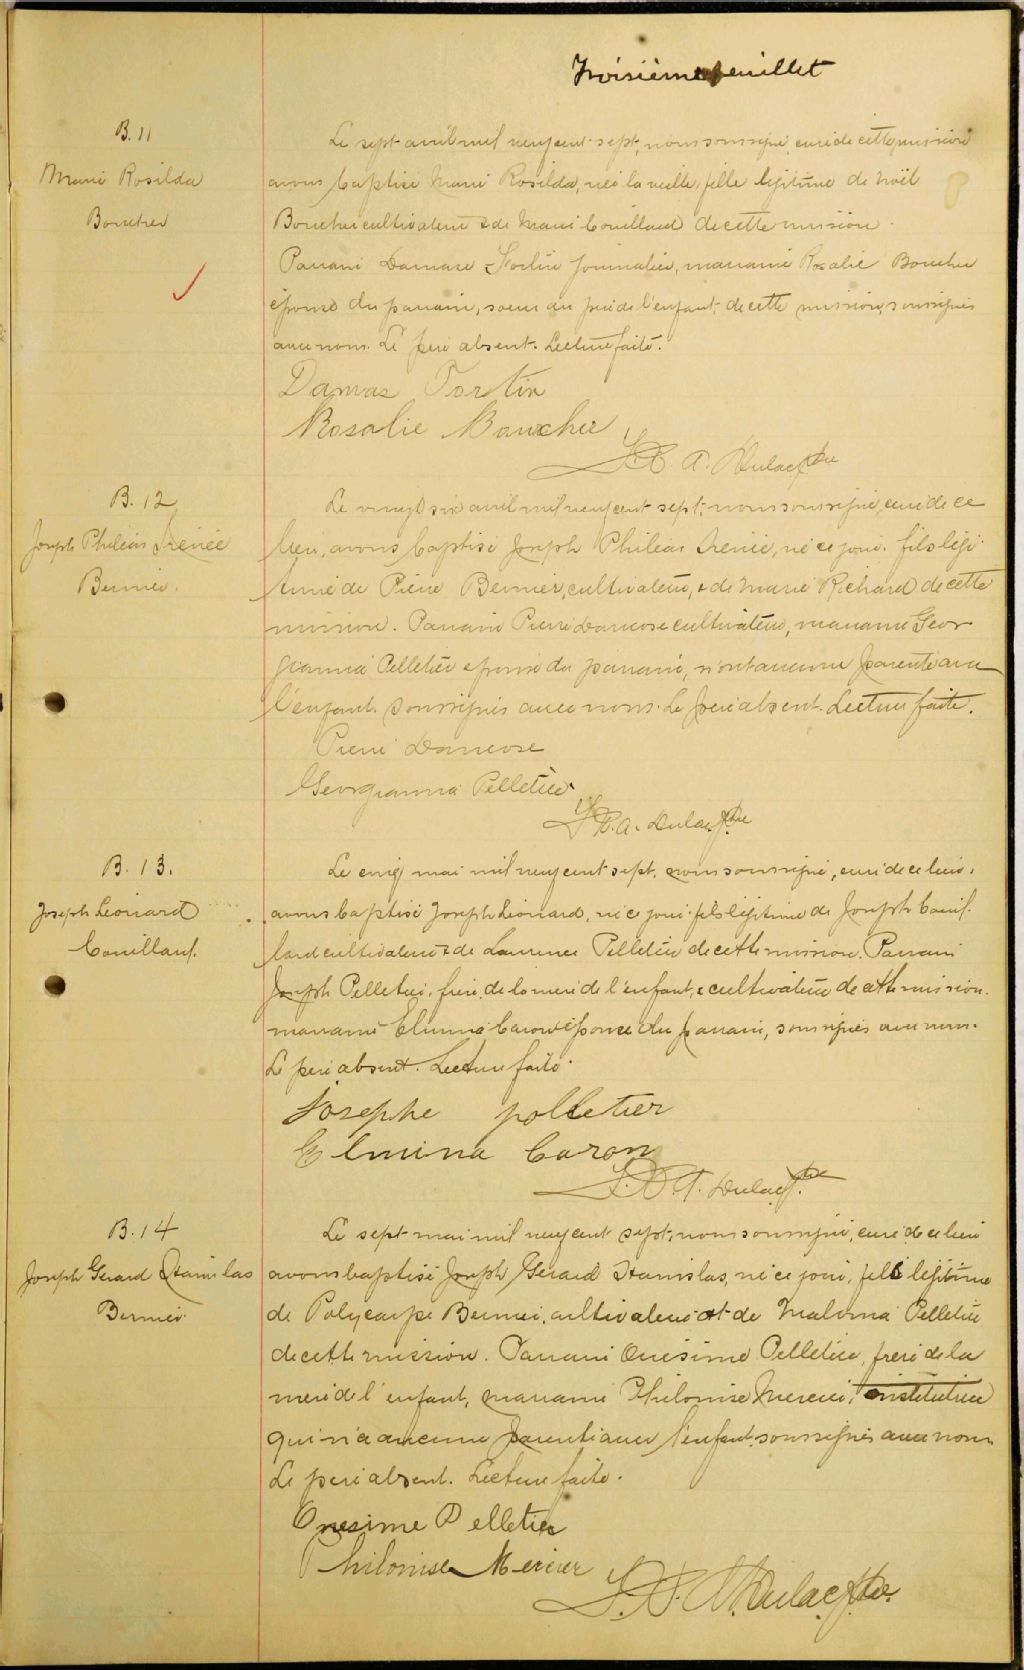 Troisième feuillet
B. 11
Marie Rosilda
Boucher
Le sept avril mil neuf cent sept, nous soussigné, curé de cette mission
avons baptisé Marie Rosilda, née la veille, fille légitime de Noël
Boucher cultivateur & de Marie Couillard de cette mission.
Parrain Damase Fortin journalier, marraine Rosalie Boucher
épouse du parrain, soeur du père de l'enfant, de cette mission, soussignés
avec nous. Le père absent. Lecture faite.
Damas Fortin
Rosalie Boucher
A. Dulac Ptre
B. 12
Joseph Philéas Irenée
Bernier.
Le vingt six avril mil neuf cent sept, nous soussigné, curé de ce
lieu, avons baptisé Joseph Philéas Irenée, né ce jour, fils légi
time de Pierre Bernier, cultivateur, & de Marie Richard de cette
mission. Parrain Pierre Dancose cultivateur, marraine Geor
gianna Pelletier épouse du parrain, n'ont aucune parenté avec
l'enfant. Soussignés avec nous. Le père absent. Lecture faite.
Pierre Dancose
Georgianna Pelletier
A. Dulac Ptre
B. 13.
Joseph Léonard
Couillard.
Le cinq mai mil neuf cent sept, nous soussigné, curé de ce lieu,
avons baptisé Joseph Léonard, né ce jour fils légitime de Joseph Couil.
lard cultivateur & de Laurence Pelletier de cette mission. Parrain
Joseph Pelletier, frère de la mère de l'enfant, cultivateur de cette mission.
marraine Elmina Caron épouse du parrain, soussignés avec nous.
Le père absent. Lecture faite.
Josephe polletier
Elmina Caron
A. Dulac Ptre
B. 14
Joseph Gerard Stanislas
Bernier
Le sept mai mil neuf cent sept, nous soussigné, curé de ce lieu
avons baptisé Joseph Gérard Stanislas, né ce jour, fils légitime
de Polycarpe Bernier, cultivateur et de Malvina Pelletier
de cette mission. Parrain Onésime Pelletier, frère de la
mère de l'enfant, marraine Philomise Mercier, institutrice
qui n'a aucune parenté avec l'enfant, soussignés avec nous
Le père absent. Lecture faite.
Onesime Pelletier
Philomise Mercier
A. Dulac Ptre.